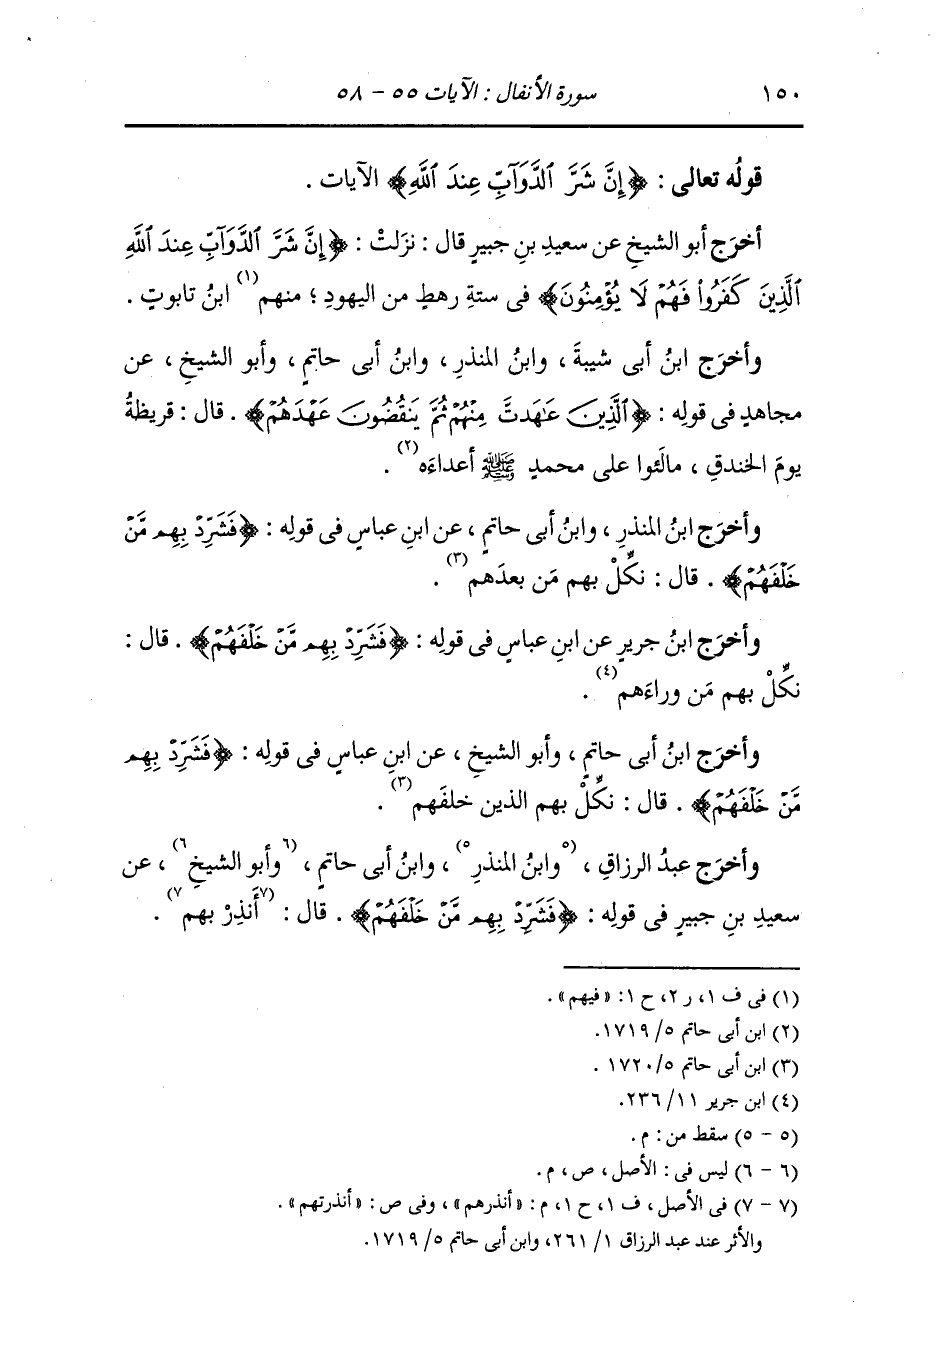 ١٥٠ سورة الأنفال : الآيات ٥٥ - ٥٨
قولُه تعالى : ﴿إِنَّ شَرَّ ٱلدَّوَآبِّ عِندَ ٱللَّهِ﴾ الآيات .
أخرَج أبو الشيخِ عن سعيدِ بنِ جبيرٍ قال : نزَلتْ : ﴿إِنَّ شَرَّ ٱلدَّوَآبِّ عِندَ ٱللَّهِ
ٱلَّذِينَ كَفَرُوا۟ فَهُمْ لَا يُؤْمِنُونَ﴾ فى ستةِ رهطٍ من اليهودِ ؛ منهم(١) ابنُ تابوتٍ .
وأخرَج ابنُ أبى شيبةَ ، وابنُ المنذرِ ، وابنُ أبى حاتمٍ ، وأبو الشيخِ ، عن
مجاهدٍ فى قولِه : ﴿ٱلَّذِينَ عَٰهَدتَّ مِنْهُمْ ثُمَّ يَنقُضُونَ عَهْدَهُمْ﴾ . قال : قريظةُ
يومَ الخندقِ ، مالَئوا على محمدٍ ﷺ أعداءَه(٢) .
وأخرَج ابنُ المنذرِ ، وابنُ أبى حاتمٍ ، عن ابنِ عباسٍ فى قولِه : ﴿فَشَرِّدْ بِهِم مَّنْ
خَلْفَهُمْ﴾ . قال : نكِّلْ بهم مَن بعدَهم(٣) .
وأخرَج ابنُ جريرٍ عن ابنِ عباسٍ فى قولِه : ﴿فَشَرِّدْ بِهِم مَّنْ خَلْفَهُمْ﴾ . قال :
نكِّلْ بهم مَن وراءَهم(٤) .
وأخرَج ابنُ أبى حاتمٍ ، وأبو الشيخِ ، عن ابنِ عباسٍ فى قولِه : ﴿فَشَرِّدْ بِهِم
مَّنْ خَلْفَهُمْ﴾ . قال : نكِّلْ بهم الذين خلفَهم(٣) .
وأخرَج عبدُ الرزاقِ ، (٥وابنُ المنذرِ٥) ، وابنُ أبى حاتمٍ ، (٦وأبو الشيخِ٦) ، عن
سعيدِ بنِ جبيرٍ فى قولِه : ﴿فَشَرِّدْ بِهِم مَّنْ خَلْفَهُمْ﴾ . قال : (٧أَنذِرْ بهم٧) .
(١) فى ف ١، ر ٢، ح ١: «فيهم» .
(٢) ابن أبى حاتم ٥/ ١٧١٩.
(٣) ابن أبى حاتم ٥/ ١٧٢٠ .
(٤) ابن جرير ١١/ ٢٣٦.
(٥ - ٥) سقط من : م .
(٦ - ٦) ليس فى : الأصل ، ص ، م .
(٧ - ٧) فى الأصل ، ف ١، ح ١، م : «أنذرهم» ، وفى ص : «أنذرتهم» .
والأثر عند عبد الرزاق ١/ ٢٦١، وابن أبى حاتم ٥/ ١٧١٩.